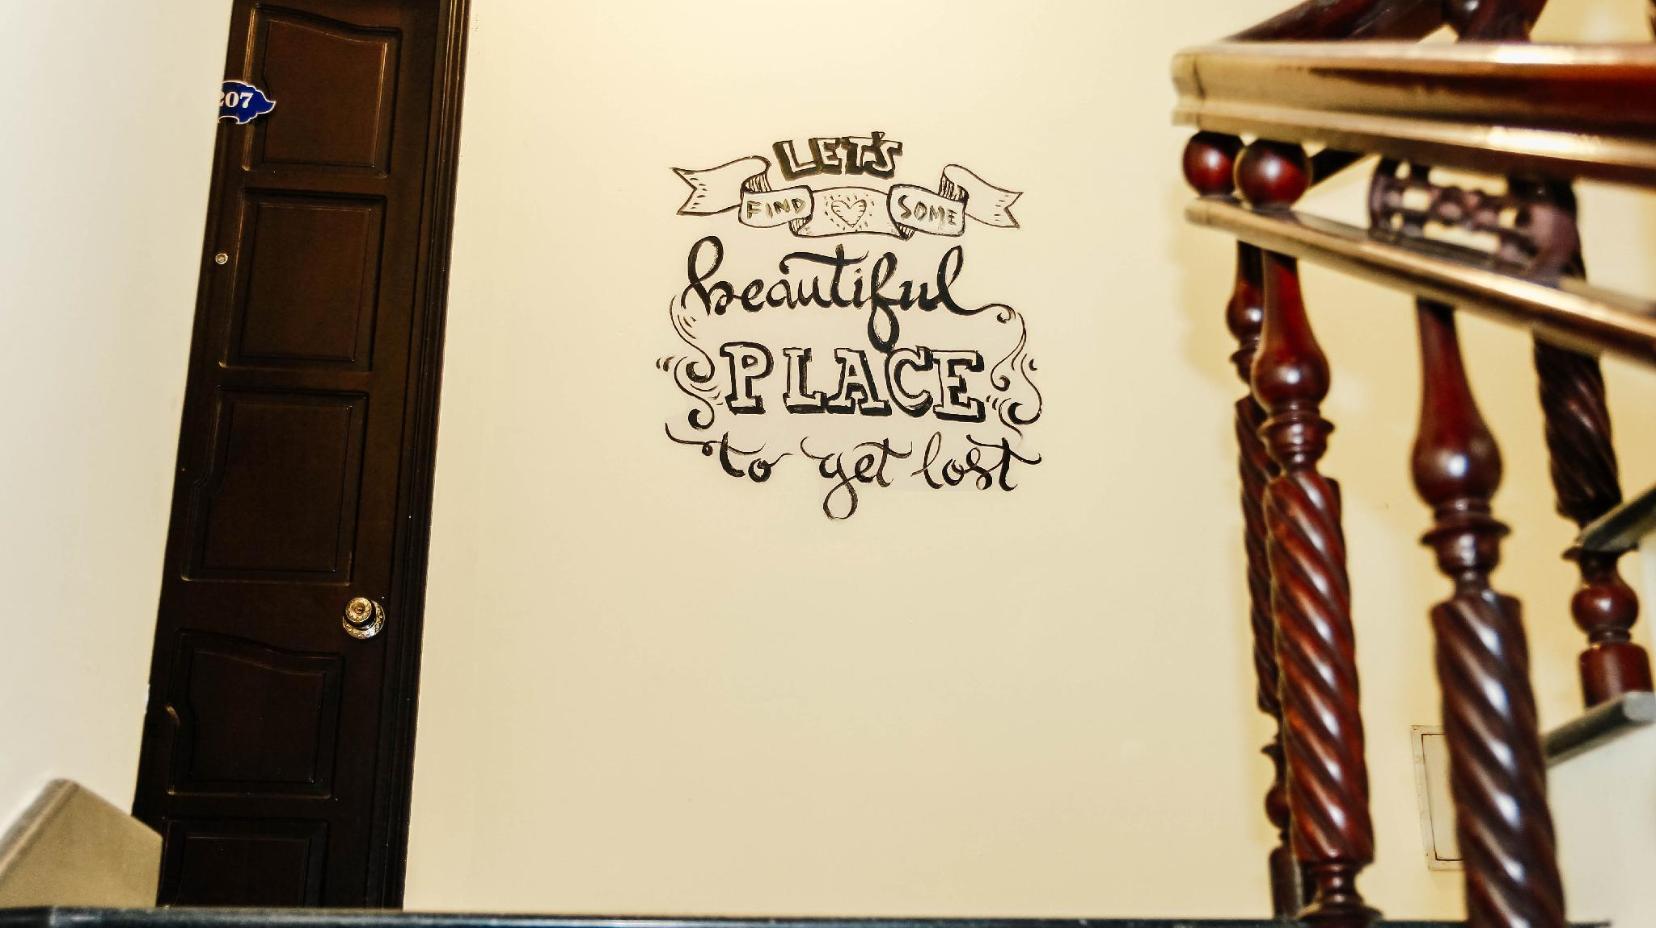 207
LET'S
FIND SOME
beautiful
PLACE
to get lost